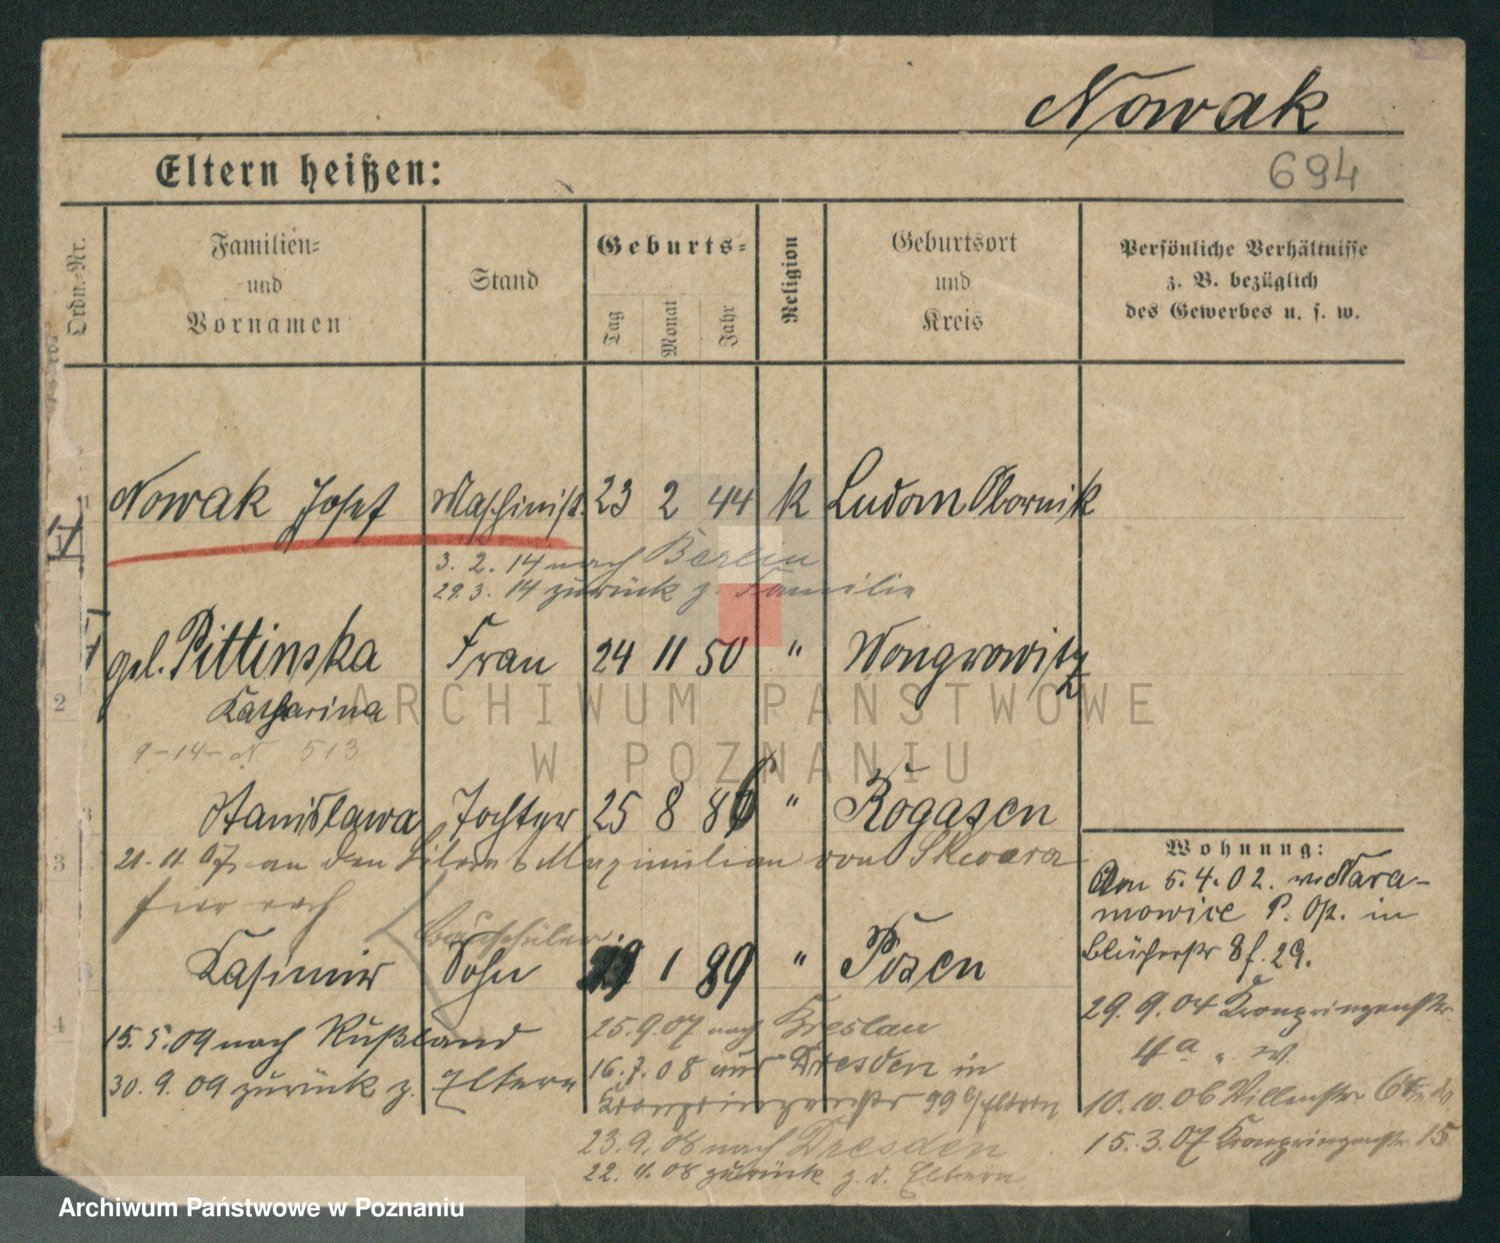 Nowak
694
Eltern heißen:
Ordn.-Nr.
Familien-
und
Vornamen
Stand
Geburts-
Tag
Monat
Jahr
Religion
Geburtsort
und
Kreis
Persönliche Verhältnisse
z. B. bezüglich
des Gewerbes u. s. w.
Nowak Josef Maschinist. 23 2 44 k Ludom Obornik
3. 2. 14 nach Berlin
29.3. 14 zurück z. Familie
2
geb. Pittinska Frau 24 11 50 " Wongrowitz
Katharina
9-14-N 513
ARCHIWUM PAŃSTWOWE
W POZNANIU
Stanislawa Tochter 25 8 86 " Rogasen
3
21. 11. 07 an den Maximilian von Skwara
Kasimir Sohn 29 1 89 " Posen
4
15. 5. 09 nach Rußland
30. 9. 09 zurück z. Eltern
25.9.07 nach Breslau
16.7.08 aus Dresden in
Kronprinzenstr 99 b/Eltern
23.9.08 nach Dresden
22. 11. 08 zurück z. d. Eltern
Wohnung:
Am 5.4.02. v. Nara-
mowice P. Op. in
Blücherstr 8 f. 29.
29. 9. 04 Kronprinzenstr.
4a " W.
10. 10. 06 Villenstr 6
15. 3. 07 Kronprinzenstr. 15
Archiwum Państwowe w Poznaniu